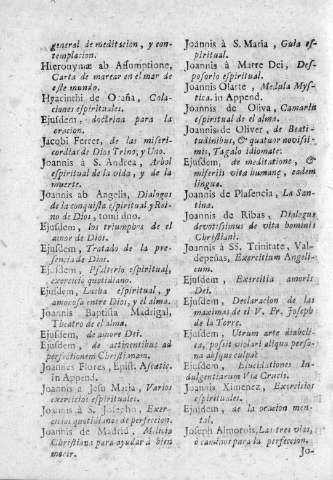 general de meditacion, y con-
templacion.
Hieronymæ ab Assumptione,
Carta de marear en el mar de
este mundo.
Hyacinthi de Ocaña, Cola-
ciones espirituales.
Ejusdem, doctrina para la
oracion.
Jacobi Ferrer, de las miseri-
cordias de Dios Trino, y Uno.
Joannis à S. Andrea, Arbol
espiritual de la vida, y de la
muerte.
Joannis ab Angelis, Dialogos
de la conquista espiritual y Rei-
no de Dios, tomi duo.
Ejusdem, los triumphos de el
amor de Dios.
Ejusdem, Tratado de la pre-
sencia de Dios.
Ejusdem, Psalterio espiritual,
exercicio quotidiano.
Ejusdem, Lucha espiritual, y
amorosa entre Dios, y el alma.
Joannis Baptista Madrigal,
Theatro de el alma.
Ejusdem, de amore Dei.
Ejusdem, de attinentibus ad
perfectionem Christianam.
Joannes Flores, Epist. Ascetic.
in Append.
Joannis à Jesu Maria, Varios
exercicios espirituales.
Joannis à S. Josepho, Exer-
cicios quotidianos de perfeccion.
Joannis de Madrid, Milicia
Christiana para ayudar à bien
morir.
Joannis à S. Maria, Guia es-
piritual.
Joannis à Matre Dei, Des-
posorio espiritual.
Joannis Olarte, Medula Mys-
tica. in Append.
Joannis de Oliva, Camarin
espiritual de el alma.
Joannis de Oliver, de Beati-
tudinibus, & quatuor novissi-
mis, Tagalo idiomate:
Ejusdem, de meditatione, &
miseriis vitæ humanæ, eadem
lingua.
Joannis de Plasencia, La San-
tina.
Joannis de Ribas, Dialogus
devotissimus de vita hominis
Christiani.
Joannis à SS. Trinitate, Val-
depeñas, Exercitium Angeli-
cum.
Ejusdem, Exercitia amoris
Dei.
Ejusdem, Declaracion de las
maximas de el V. Fr. Joseph
de la Torre.
Ejusdem, Utrum arte diaboli-
ca, possit violari aliqua perso-
na absque culpa?
Ejusdem, Elucidationes In-
dulgentiarum Via Crucis.
Joannis Ximenez, Exercicios
espirituales.
Ejusdem, de la oracion men-
tal.
Joseph Almorois, Las tres vias,
ò caminos para la perfeccion.
Jo-